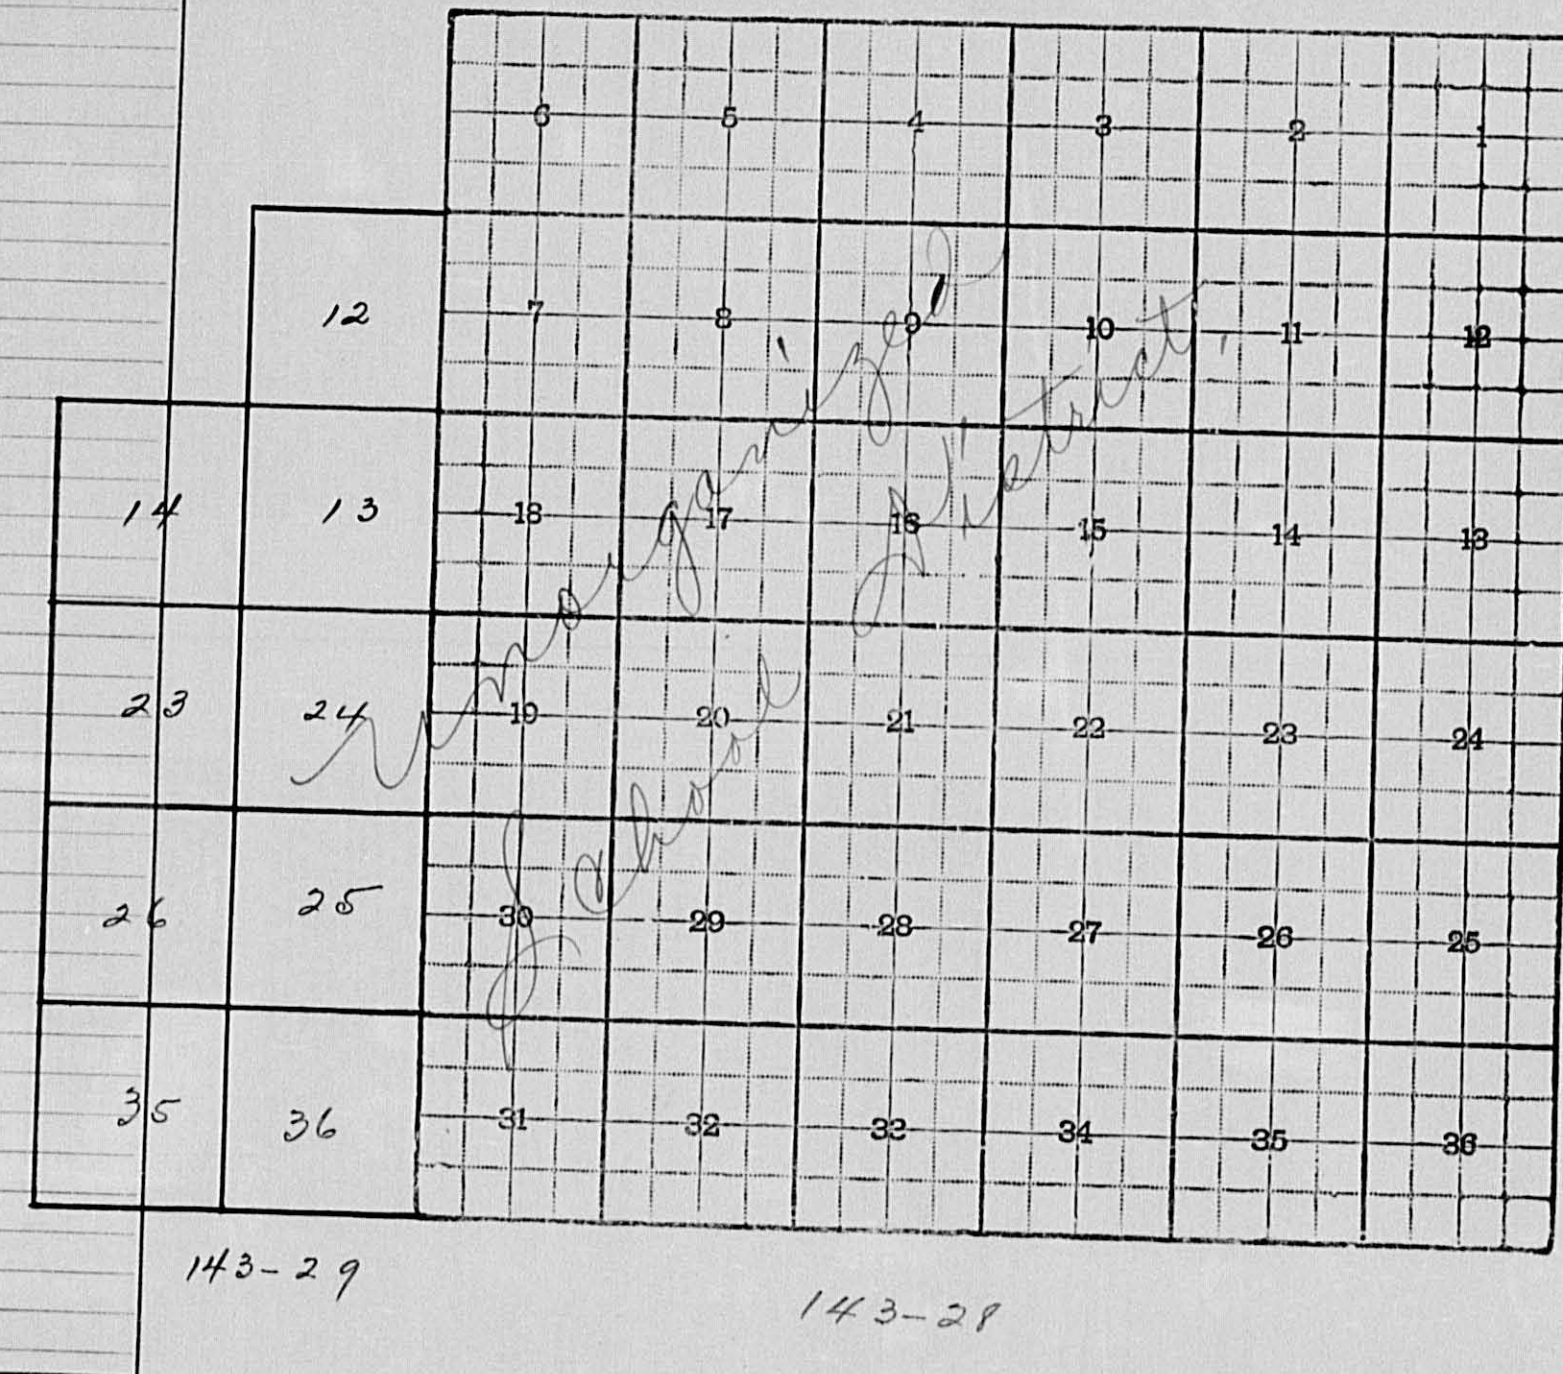 6 5 4 3 2 1
12 7 8 9 10 11 12
14 13 18 17 16 15 14 13
23 24 19 20 21 22 23 24
26 25 30 29 28 27 26 25
35 36 31 32 33 34 35 36
Unorganized
School District,
143-29
143-28